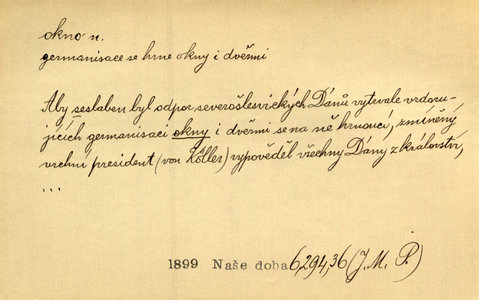 okno n.
germanisace se hrne okny i dveřmi
Aby seslaben byl odpor severošlesvických Dánů vytrvale vzdoru-
jících germanisaci okny i dveřmi se na ně hrnoucí, zmíněný
vrchní president (von Köller) vypověděl všechny Dány z království,
...
1899 Naše doba 6,294,36 (J. M. P.)